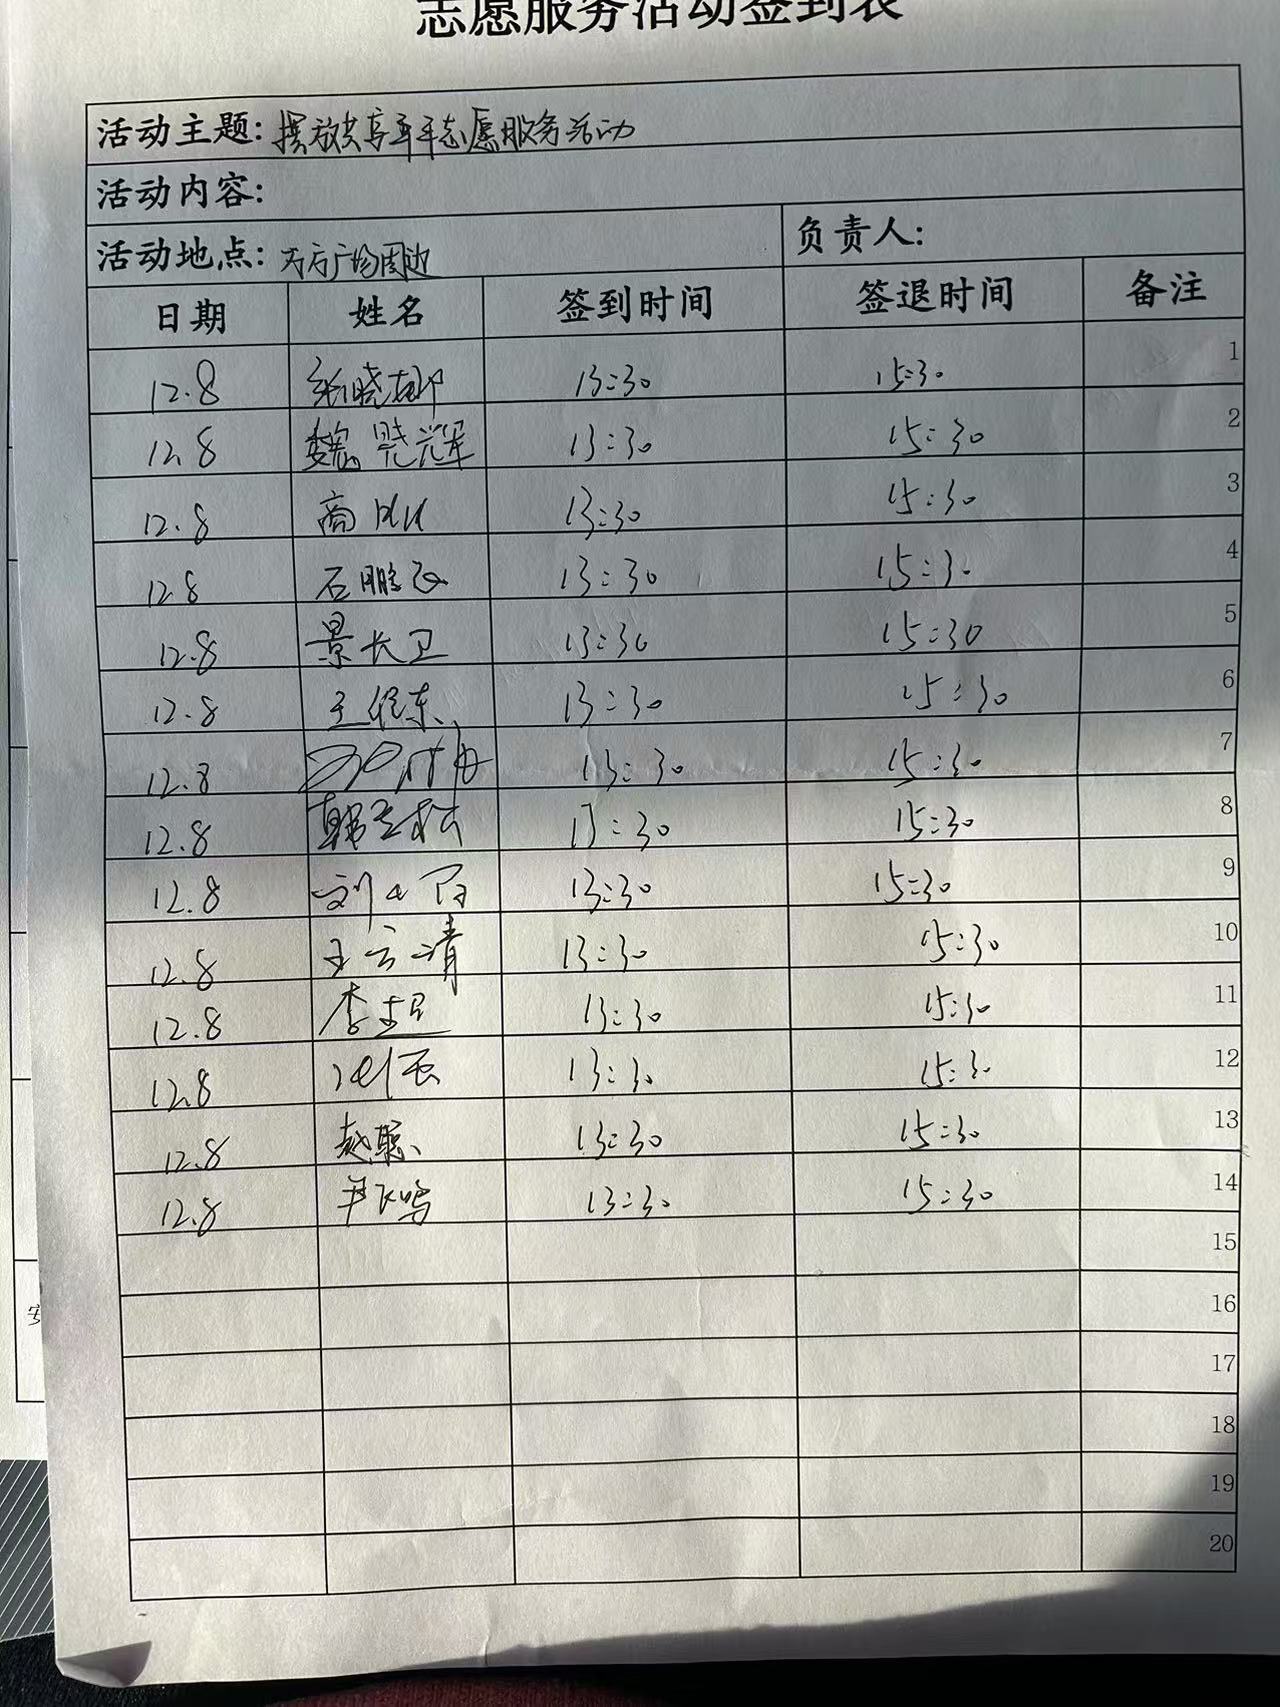 志愿服务活动签到表
活动主题: 摆放共享单车志愿服务活动
活动内容:
活动地点: 万方广场周边 负责人:
日期 姓名 签到时间 签退时间 备注
12.8 张晓娜 13:30 15:30 1
12.8 魏晃辉 13:30 15:30 2
12.8 商 13:30 15:30 3
12.8 石鹏飞 13:30 15:30 4
12.8 景长卫 13:30 15:30 5
12.8 王俊东 13:30 15:30 6
12.8 13:30 15:30 7
12.8 韩立松 13:30 15:30 8
12.8 刘 13:30 15:30 9
12.8 王云清 13:30 15:30 10
12.8 李 13:30 15:30 11
12.8 13:30 15:30 12
12.8 赵聪 13:30 15:30 13
12.8 尹飞鸣 13:30 15:30 14
15
16
17
18
19
20